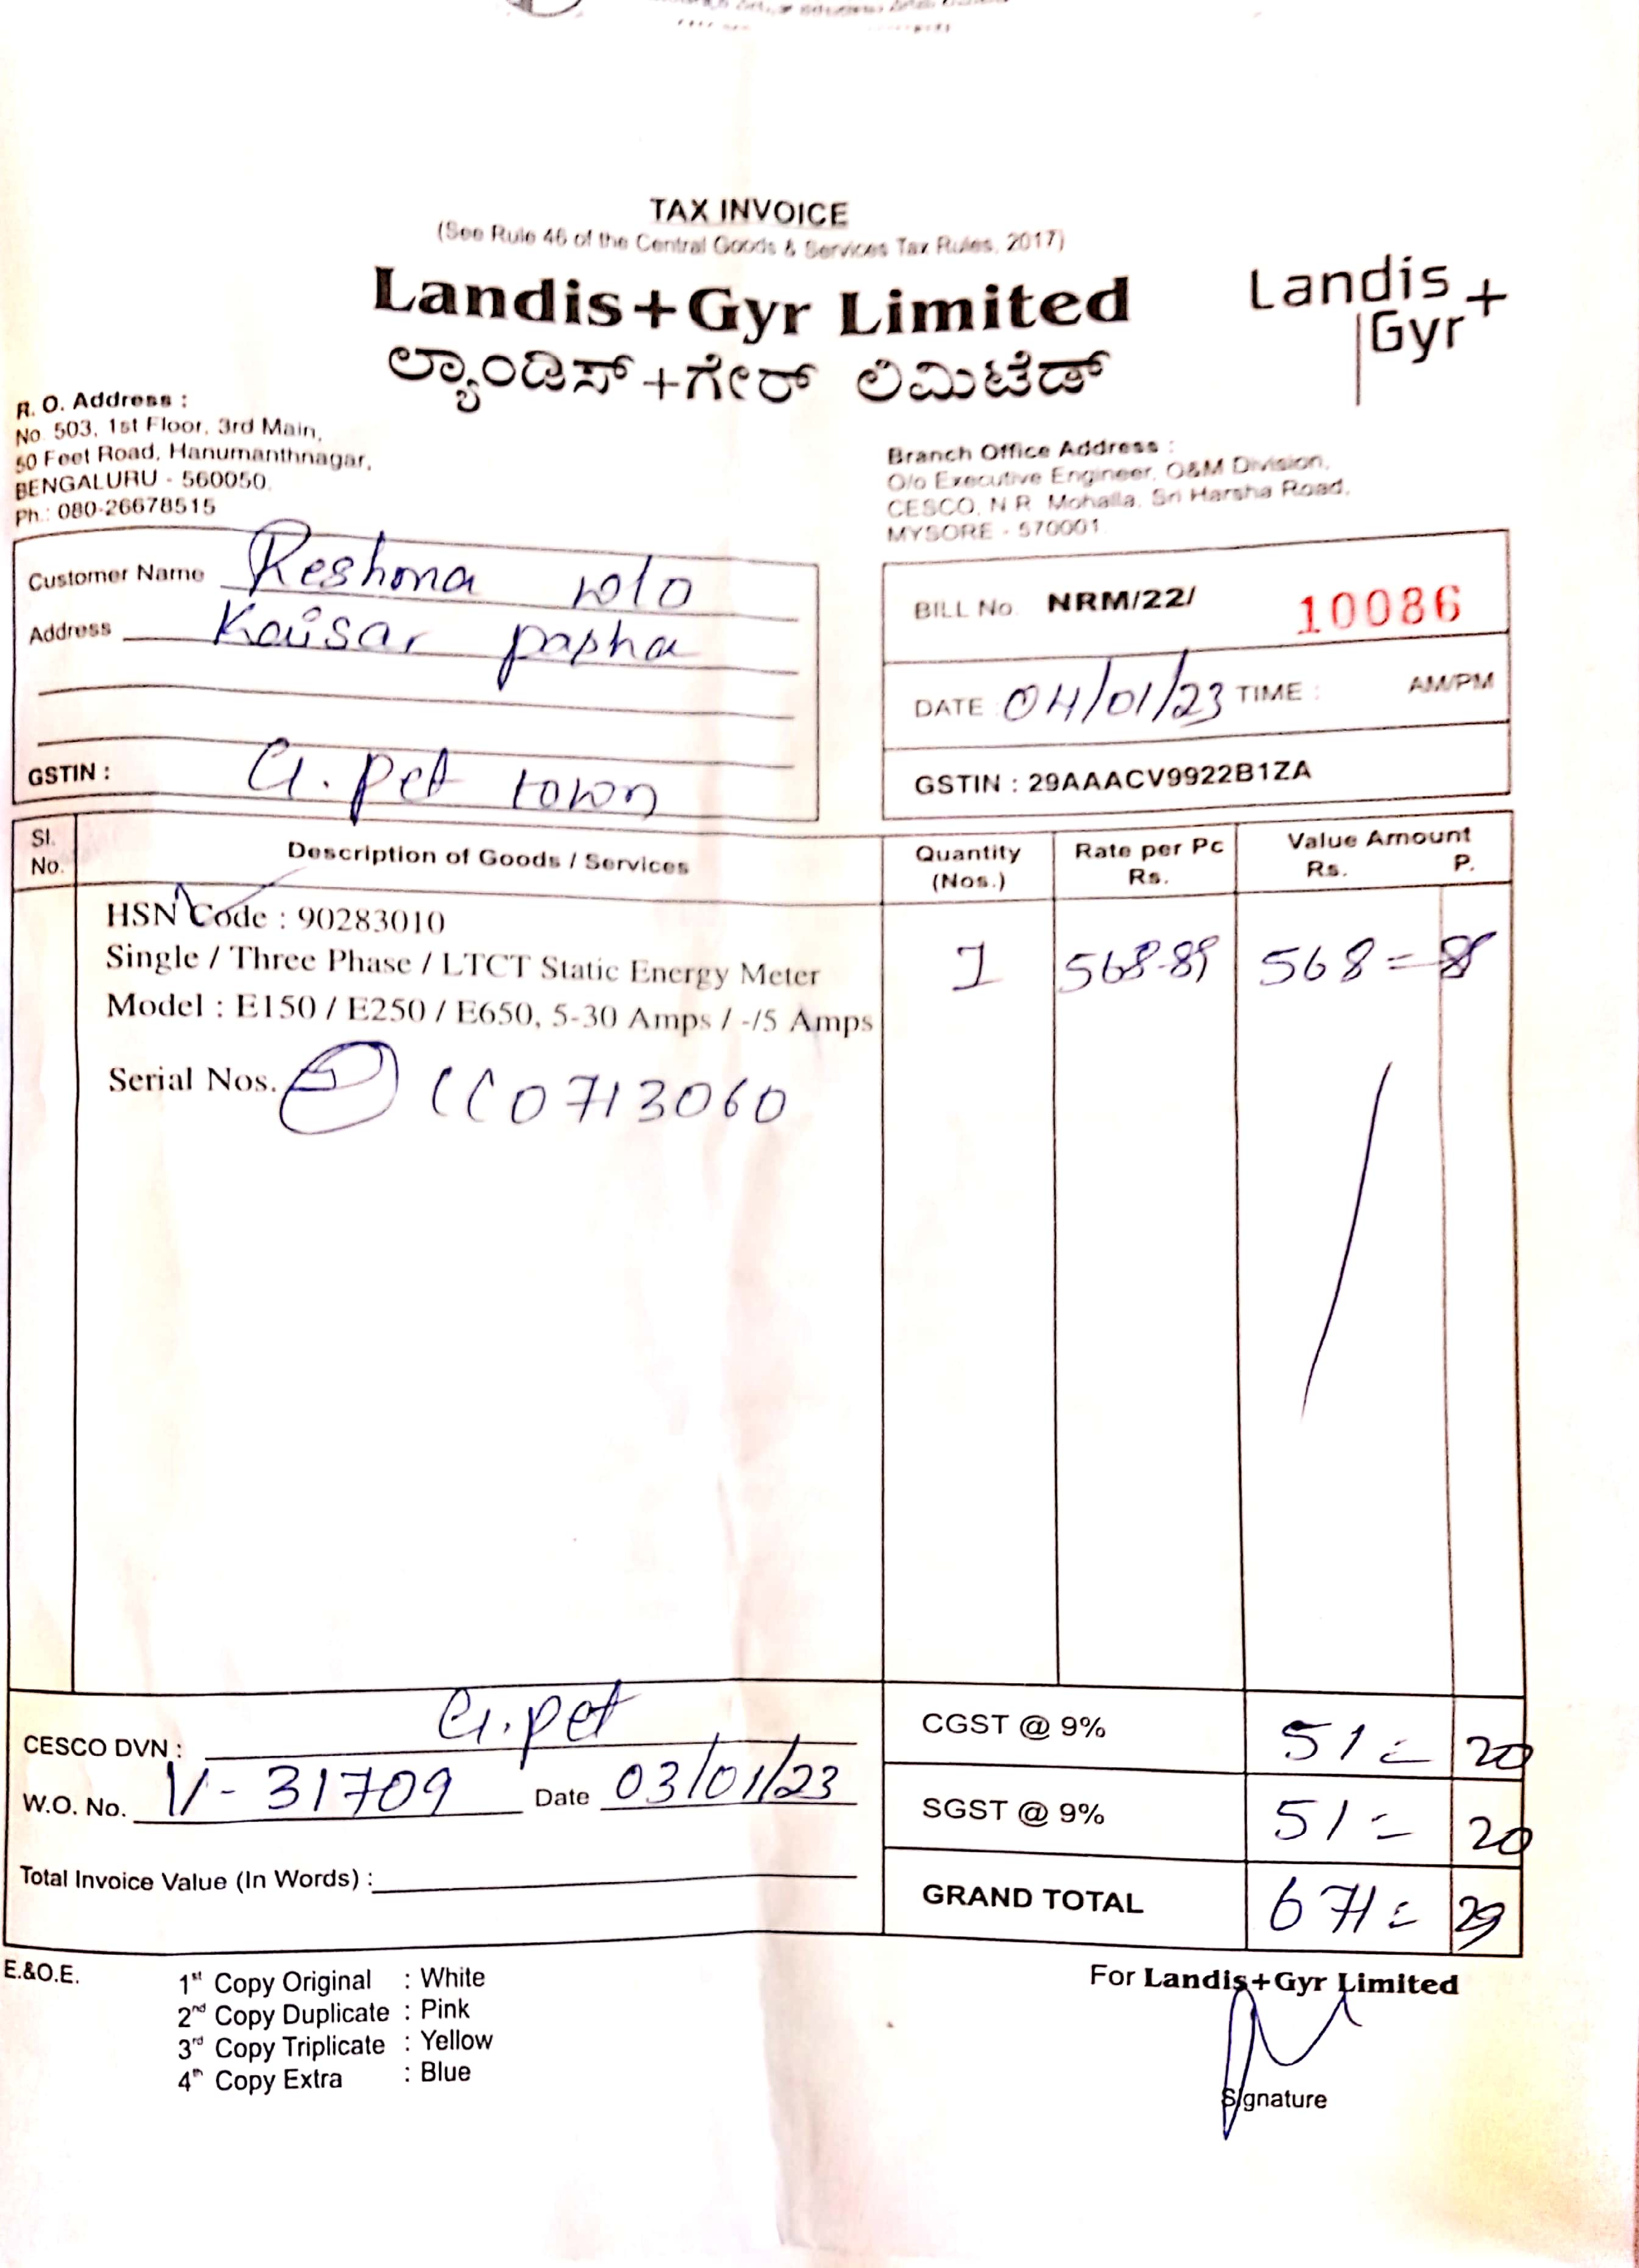 TAX INVOICE
(See Rule 46 of the Central Goods & Services Tax Rules, 2017)
Landis+Gyr Limited
ಲ್ಯಾಂಡಿಸ್+ಗೇರ್ ಲಿಮಿಟೆಡ್
Landis+
Gyr
R. O. Address :
No. 503, 1st Floor, 3rd Main,
50 Feet Road, Hanumanthnagar,
BENGALURU - 560050.
Ph.: 080-26678515
Branch Office Address :
O/o Executive Engineer, O&M Division,
CESCO, N.R. Mohalla, Sri Harsha Road,
MYSORE - 570001.
Customer Name Reshma w/o
Address Kousar pasha
GSTIN : G.pet town
BILL No. NRM/22/ 10086
DATE 04/01/23 TIME : AM/PM
GSTIN : 29AAACV9922B1ZA
Sl. No. Description of Goods / Services Quantity (Nos.) Rate per Pc Rs. Value Amount Rs. P.
HSN Code : 90283010
Single / Three Phase / LTCT Static Energy Meter 1 568-89 568=
Model : E150 / E250 / E650, 5-30 Amps / -/5 Amps
Serial Nos. CC0713060
CESCO DVN : G.pet
W.O. No. V-31709 Date 03/01/23
Total Invoice Value (In Words) :
CGST @ 9% 51= 20
SGST @ 9% 51= 20
GRAND TOTAL 671= 29
E.&O.E.
1st Copy Original : White
2nd Copy Duplicate : Pink
3rd Copy Triplicate : Yellow
4th Copy Extra : Blue
For Landis+Gyr Limited
Signature